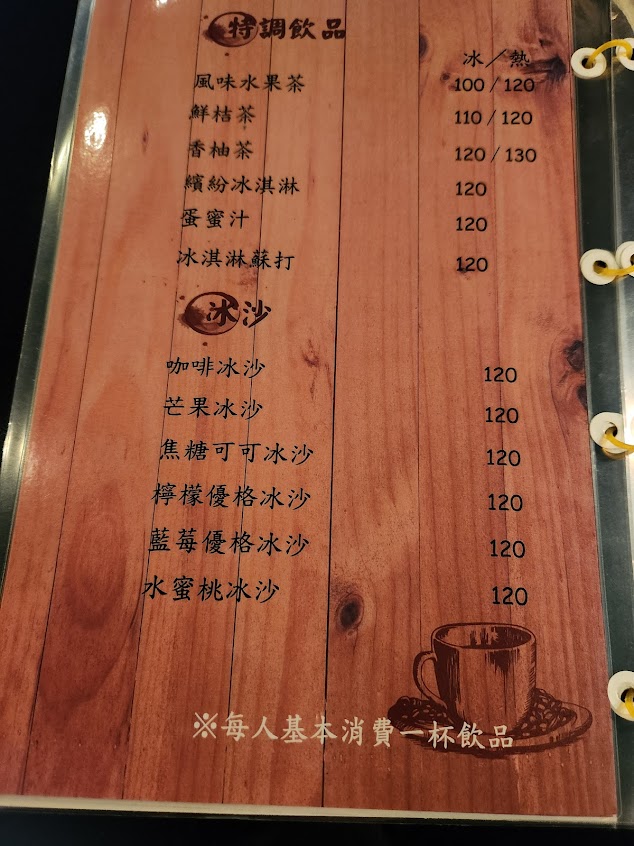 特調飲品
冰／熱
風味水果茶 100 / 120
鮮桔茶 110 / 120
香柚茶 120 / 130
繽紛冰淇淋 120
蛋蜜汁 120
冰淇淋蘇打 120
冰沙
咖啡冰沙 120
芒果冰沙 120
焦糖可可冰沙 120
檸檬優格冰沙 120
藍莓優格冰沙 120
水蜜桃冰沙 120
※每人基本消費一杯飲品